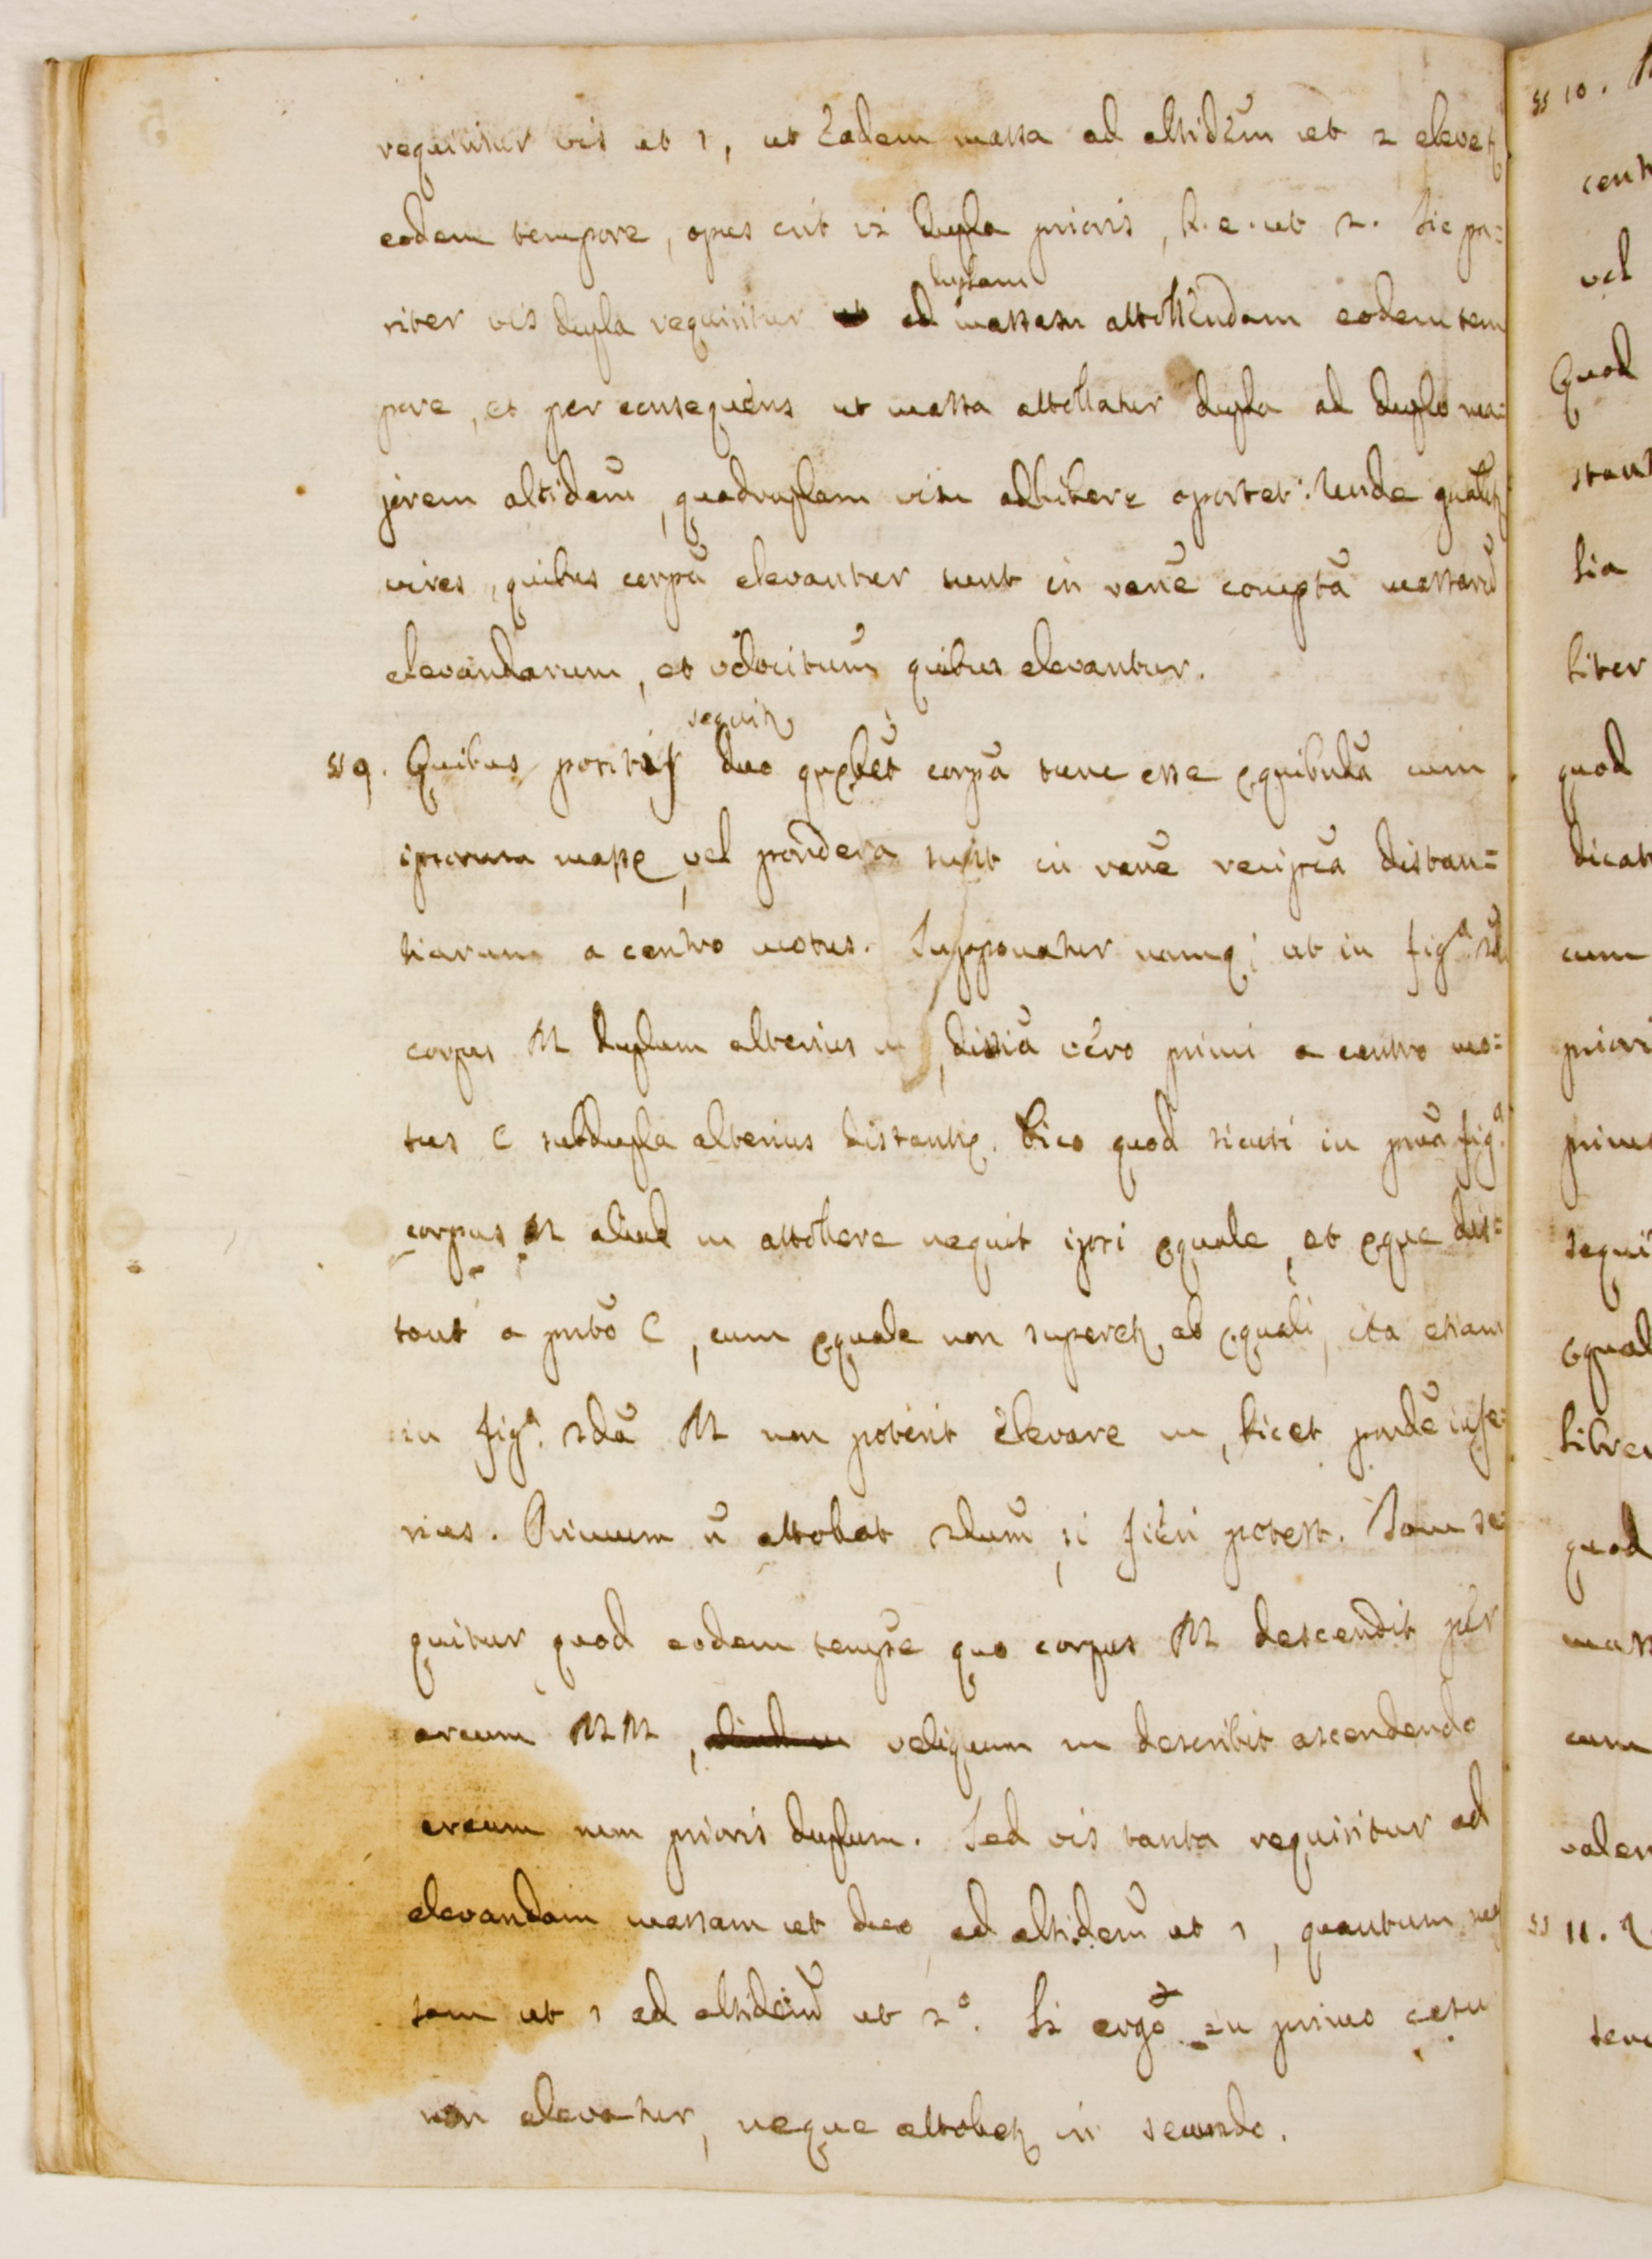 requiritur vis ut 1, ut eadem massa ad altidem̃ ut 2 elevetr
eodem tempore, opus erit vi dupla prioris, h.e. ut 2. Sic pa=
riter vis dupla requiritur ad duplam massam attollendam eodem tem
pore, et per consequens ut massa attollatur dupla ad duplo ma=
jorem altidem̃, quadruplam vim adhibere oportet. Unde gñaltr
vires, quibus corpã elevantur sunt in ronẽ comptã massarũ
elevandarum, et velocitum̃ quibus elevantur.
§§ 9. Quibus positis sequitr duo quęlbet̃ corpã tunc esse ęquibridã cum
ipsorum massę, vel pondera sunt in ronẽ reciprcã distan=
tiarum a centro motus. Supponatur namq; ut in figa. 2dã
corpus M duplum alterius m, distiã vero primi a centro mo=
tus C subdupla alterius distantię. Dico quod sicuti in pmã figa.
corpus M aliud m attollere nequit ipsi ęquale, et ęque dis=
tant a pntõ C, cum ęquale non superetr ab ęquali, ita etiam
in figa. 2dã M non poterit elevare m, licet pondẽ infe=
rius. Primum ñ attollat 2dum̃, si fieri potest. Iam se=
quitur quod eodem temprẽ quo corpus M descendit per
arcum MM, reliquum m describit ascendendo
arcum mm prioris duplum. Sed vis tanta requiritur ad
elevandam massam ut duo ad altidem̃ ut 1, quantum mas
sam ut 1 ad altidem̃ ut 2. Si ergo in primo casu
non elevatur, neque attolletr in secundo.
§§ 10.
cent
vel
Quod
stant
tia
liter
quod
dicat
cum
priori
primo
sequi
ęqual
libre
quod
mass
cum
valer
§§ 11.